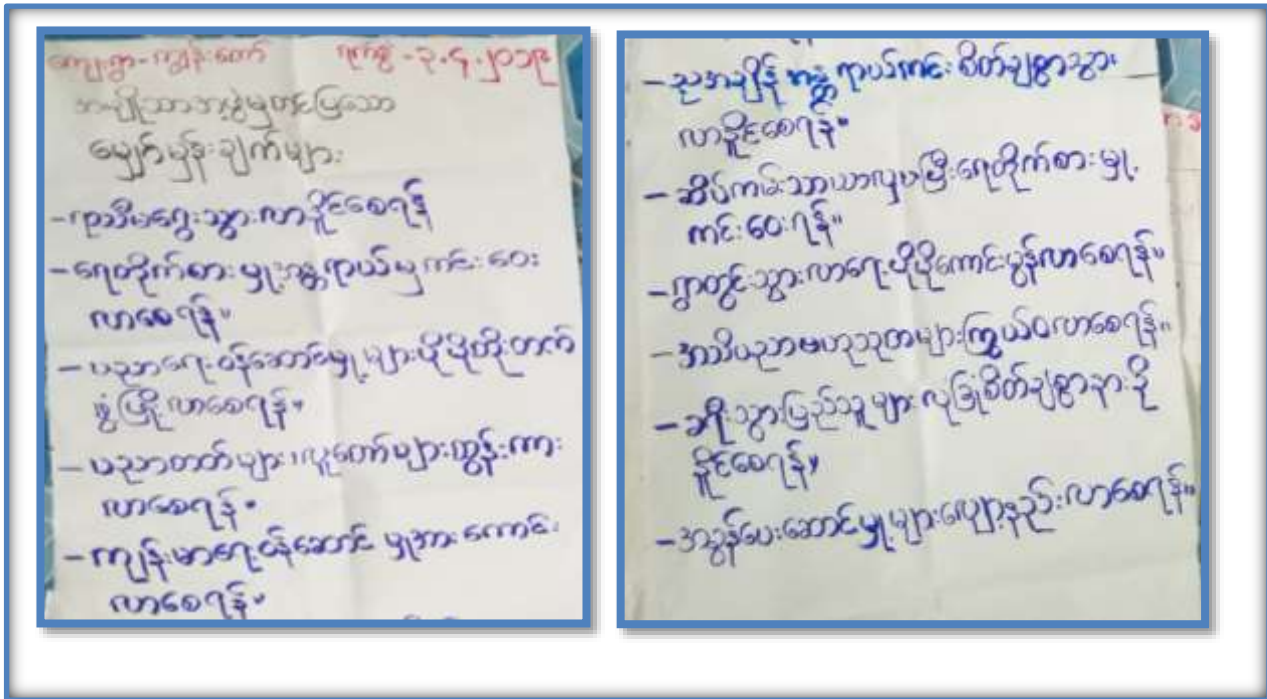 ကျေးရွာ-ကျွန်းတော် ရက်စွဲ-၃.၄.၂၀၁၉
အမျိုးသားအဖွဲ့မှတင်ပြသော
မျှော်မှန်းချက်များ
-ရာသီမရွေးသွားလာနိုင်စေရန်
-ရေတိုက်စားမှု့အန္တရာယ်မှကင်းဝေး
လာစေရန်။
-ပညာရေးဝန်ဆောင်မှု့များပိုမိုတိုးတက်
ဖွံ့ဖြိုးလာစေရန်။
-ပညာတတ်များ၊လူတော်များထွန်းကား
လာစေရန်။
-ကျန်းမာရေးဝန်ဆောင်မှုအားကောင်း
လာစေရန်။
-ညအချိန်အန္တရာယ်ကင်းစိတ်ချစွာသွား
လာနိုင်စေရန်။
-ဆိပ်ကမ်းသာယာလှပပြီးရေတိုက်စားမှု့
ကင်းဝေးရန်။
-ရွာတွင်းသွားလာရေးပိုမိုကောင်းမွန်လာစေရန်။
-အသိပညာဗဟုသုတများကြွယ်ဝလာစေရန်။
-ခရီးသွားပြည်သူများလုံခြုံစိတ်ချစွာနားခို
နိုင်စေရန်။
-အခွန်ပေးဆောင်မှု့များလျော့နည်းလာစေရန်။